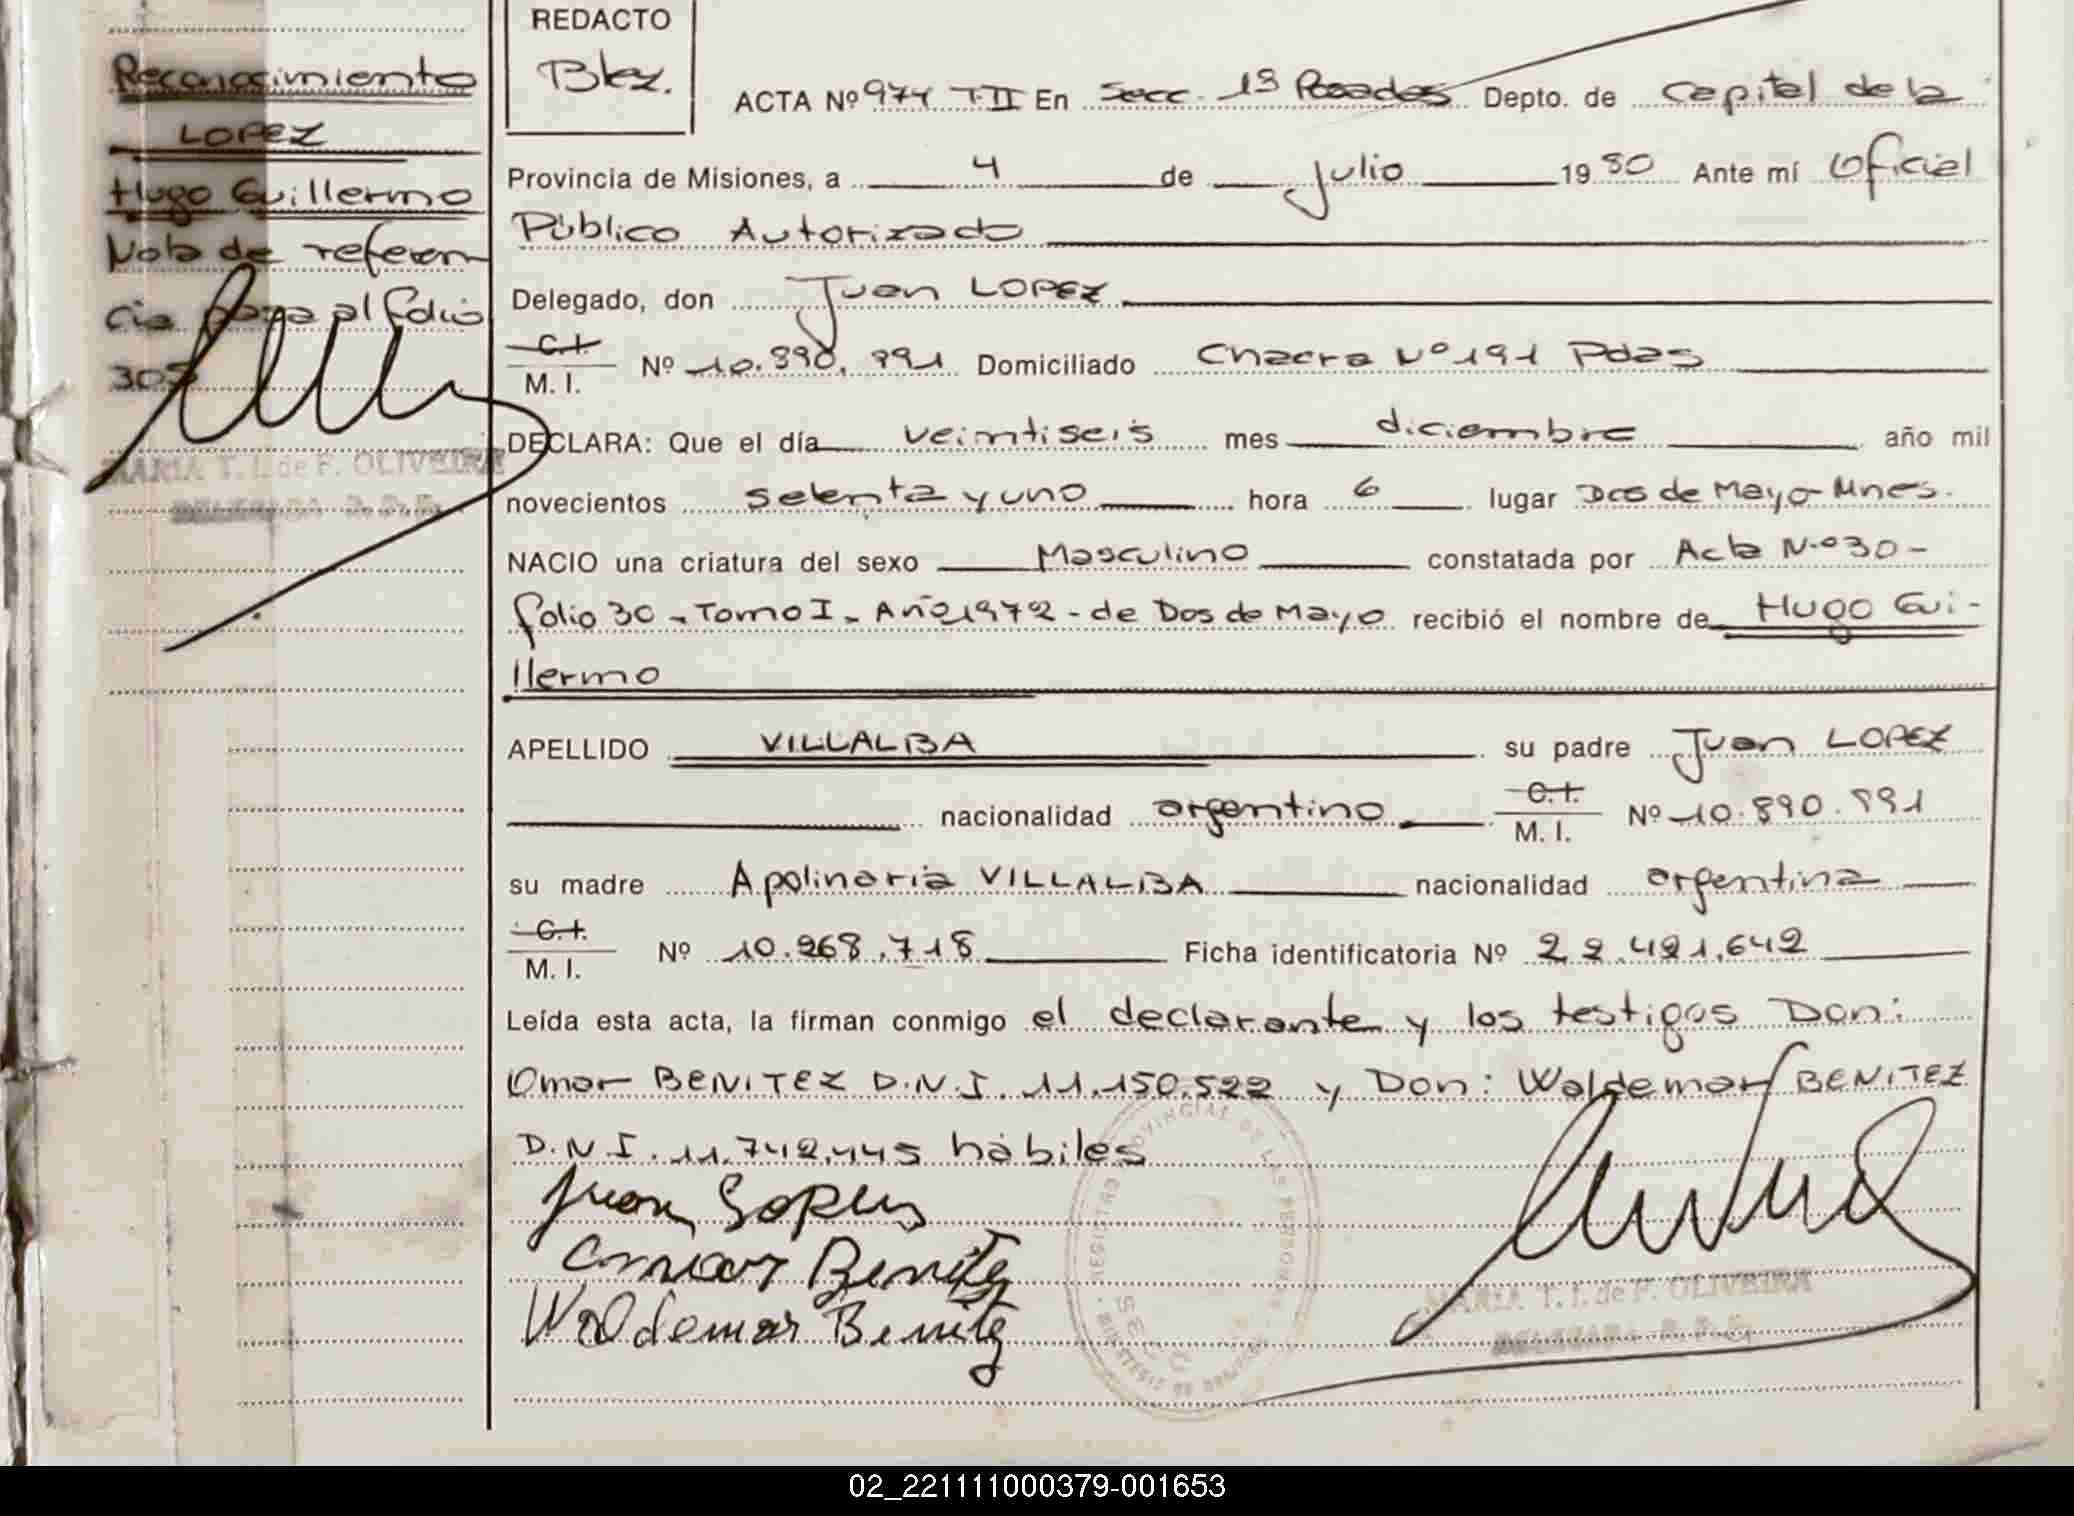 Reconocimiento
LOPEZ
Hugo Guillermo
Nota de referen
cia pasa al folio
305
MARIA T. I. de F. OLIVEIRA
DELEGADA R. P. P.
REDACTO
Blez.
ACTA Nº 974 T.II En Secc. 1ª Posadas Depto. de Capital de la
Provincia de Misiones, a 4 de Julio 1980 Ante mí Oficial
Público Autorizado
Delegado, don Juan LOPEZ
C.I.
M. I. Nº 10.890.891 Domiciliado Chacra Nº 191 Pdas
DECLARA: Que el día veintiseis mes diciembre año mil
novecientos setenta y uno hora 6 lugar Dos de Mayo-Mnes.
NACIO una criatura del sexo Masculino constatada por Acta N.º 30-
folio 30 - Tomo I - Año 1972 - de Dos de Mayo recibió el nombre de Hugo Gui-
llermo
APELLIDO VILLALBA su padre Juan LOPEZ
nacionalidad argentino C.I.
M. I. Nº 10.890.891
su madre Apolinaria VILLALBA nacionalidad argentina
C.I.
M. I. Nº 10.268.718 Ficha identificatoria Nº 22.421.642
Leída esta acta, la firman conmigo el declarante y los testigos Don:
Omar BENITEZ D.N.I. 11.150.522 y Don: Waldemar BENITEZ
D.N.I. 11.742.445 hábiles
Juan Lopez
Omar Benitez
Waldemar Benitez
REGISTRO PROVINCIAL DE LAS PERSONAS
MARIA T. I. de F. OLIVEIRA
02_221111000379-001653